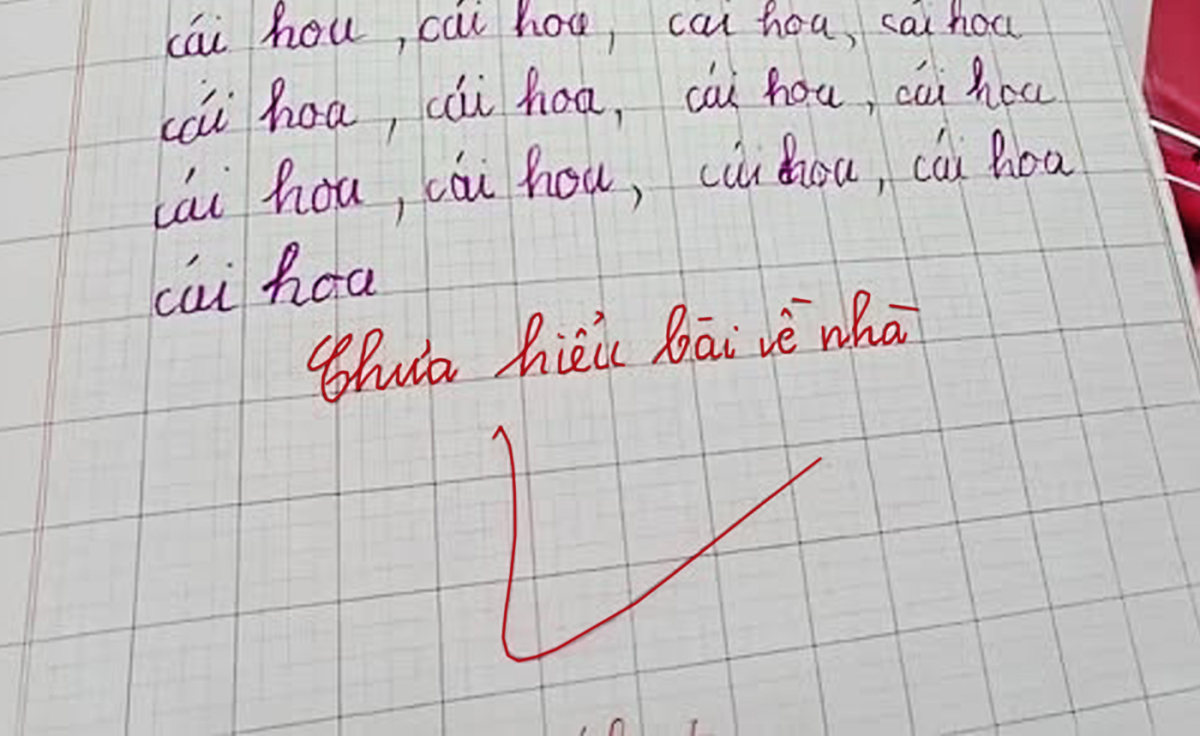 cái hoa, cái hoa, cái hoa, cái hoa
cái hoa, cái hoa, cái hoa, cái hoa
cái hoa, cái hoa, cái hoa, cái hoa
cái hoa
Chưa hiểu bài về nhà